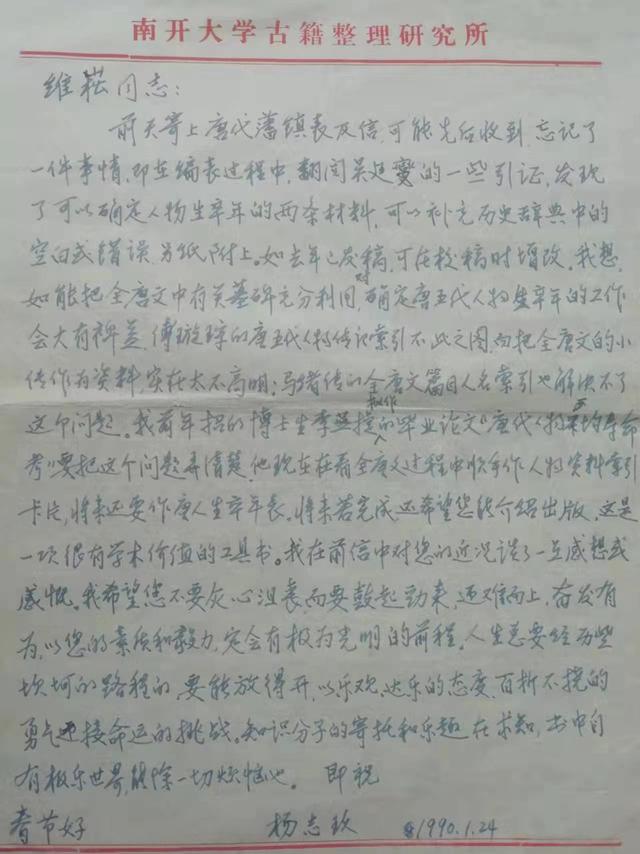 南开大学古籍整理研究所
维崧同志：
前天寄上唐代藩镇表及信，可能先后收到，忘记了
一件事情，即在编表过程中，翻阅吴廷燮的一些引证，发现
了可以确定人物生卒年的两条材料，可以补充历史辞典中的
空白或错误，另纸附上。如去年已发稿，可在校稿时增改。我想，
如能把全唐文中有关墓碑充分利用，对确定唐五代人物生卒年的工作
会大有裨益，傅璇琮的唐五代人物传记索引不此之图，而把全唐文的小
传作为资料，实在太不高明；马绪传的全唐文篇目人名索引也解决不了
这个问题。我前年招的博士生李燕捷拟作的毕业论文《唐代人物平均寿命
考》要把这个问题弄清楚，他现在在看全唐文过程中顺手作人物资料索引
卡片，将来还要作唐人生卒年表。将来若完成还希望您能介绍出版，这是
一项很有学术价值的工具书。我在前信中对您的近况谈了一点感想或
感慨。我希望您不要灰心沮丧，而要鼓起劲来，迎难而上，奋发有
为，以您的素质和毅力，定会有极为光明的前程。人生总要经历些
坎坷的路程的，要能放得开，以乐观、达乐的态度，百折不挠的
勇气迎接命运的挑战。知识分子的寄托和乐趣在求知，书中自
有极乐世界，能除一切烦恼也。 即祝
春节好 杨志玖 1990.1.24